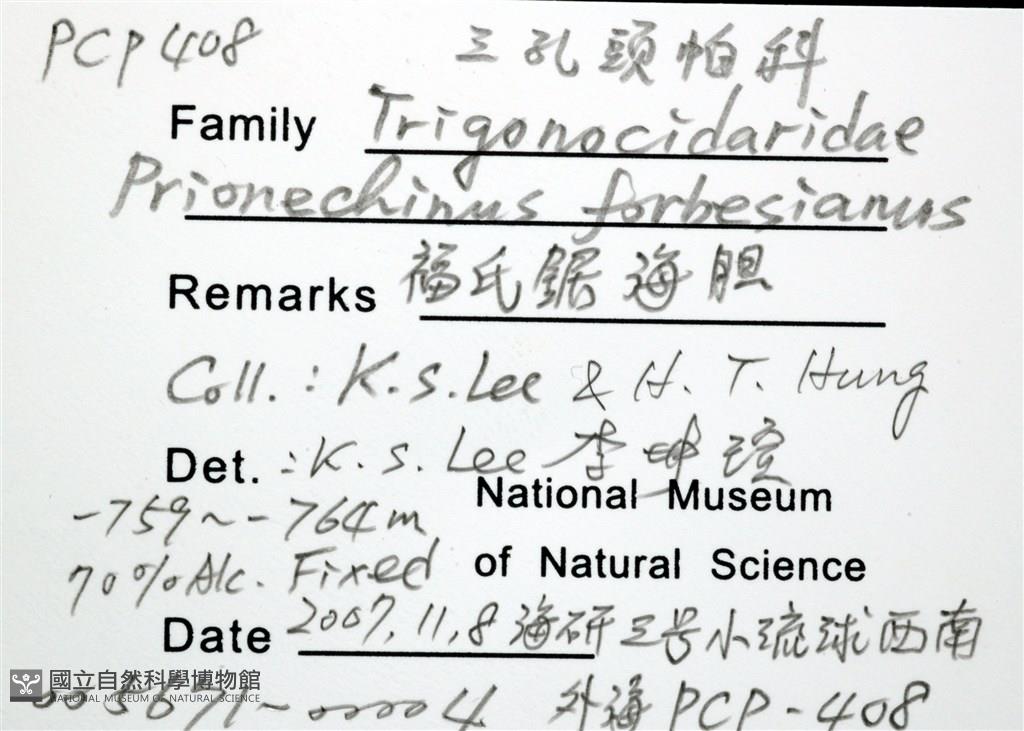 PCP408 三孔頭帕科
Family Trigonocidaridae
Prionechinus forbesianus
Remarks 福氏鋸海胆
Coll.: K.S.Lee & H. T. Hung
Det.: K. S. Lee 李坤瑄
-759~-764m National Museum
70%Alc. Fixed of Natural Science
Date 2007.11.8 海研三号小琉球西南
外海 PCP-408
國立自然科學博物館
NATIONAL MUSEUM OF NATURAL SCIENCE